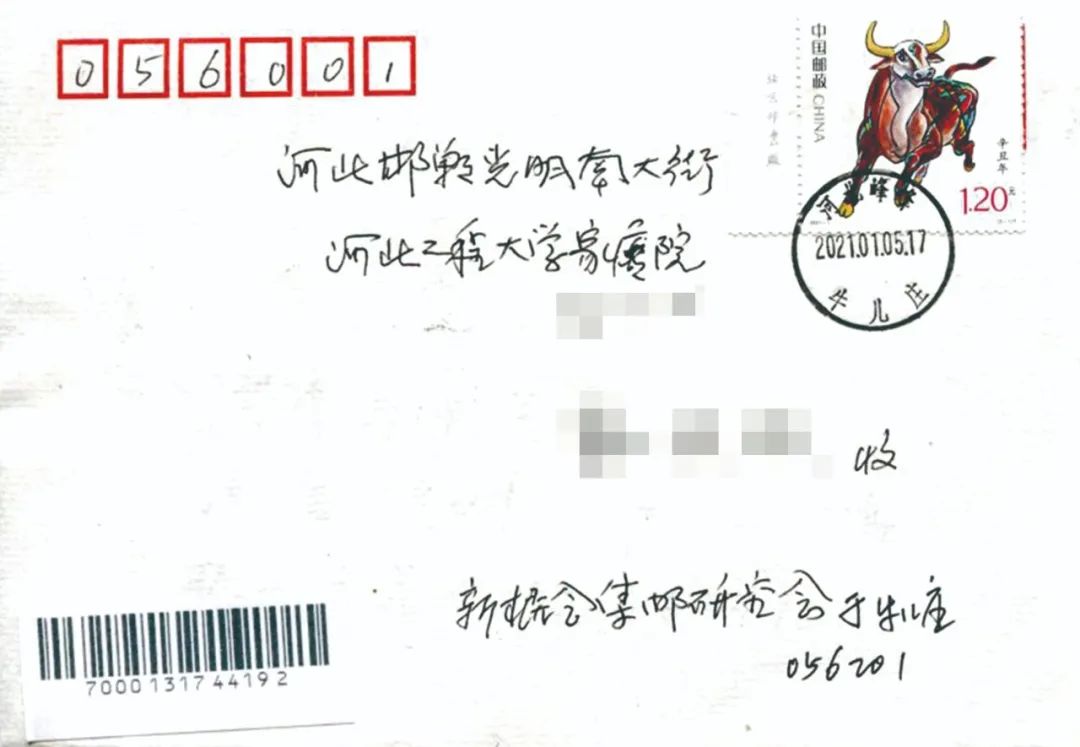 056001
中国邮政 CHINA
辛丑年
1.20元
河北邯郸光明南大街
河北工程大学家属院
2021.01.05.17
牛儿庄
收
新概念集邮研究会于牛儿庄
056201
7000131744192